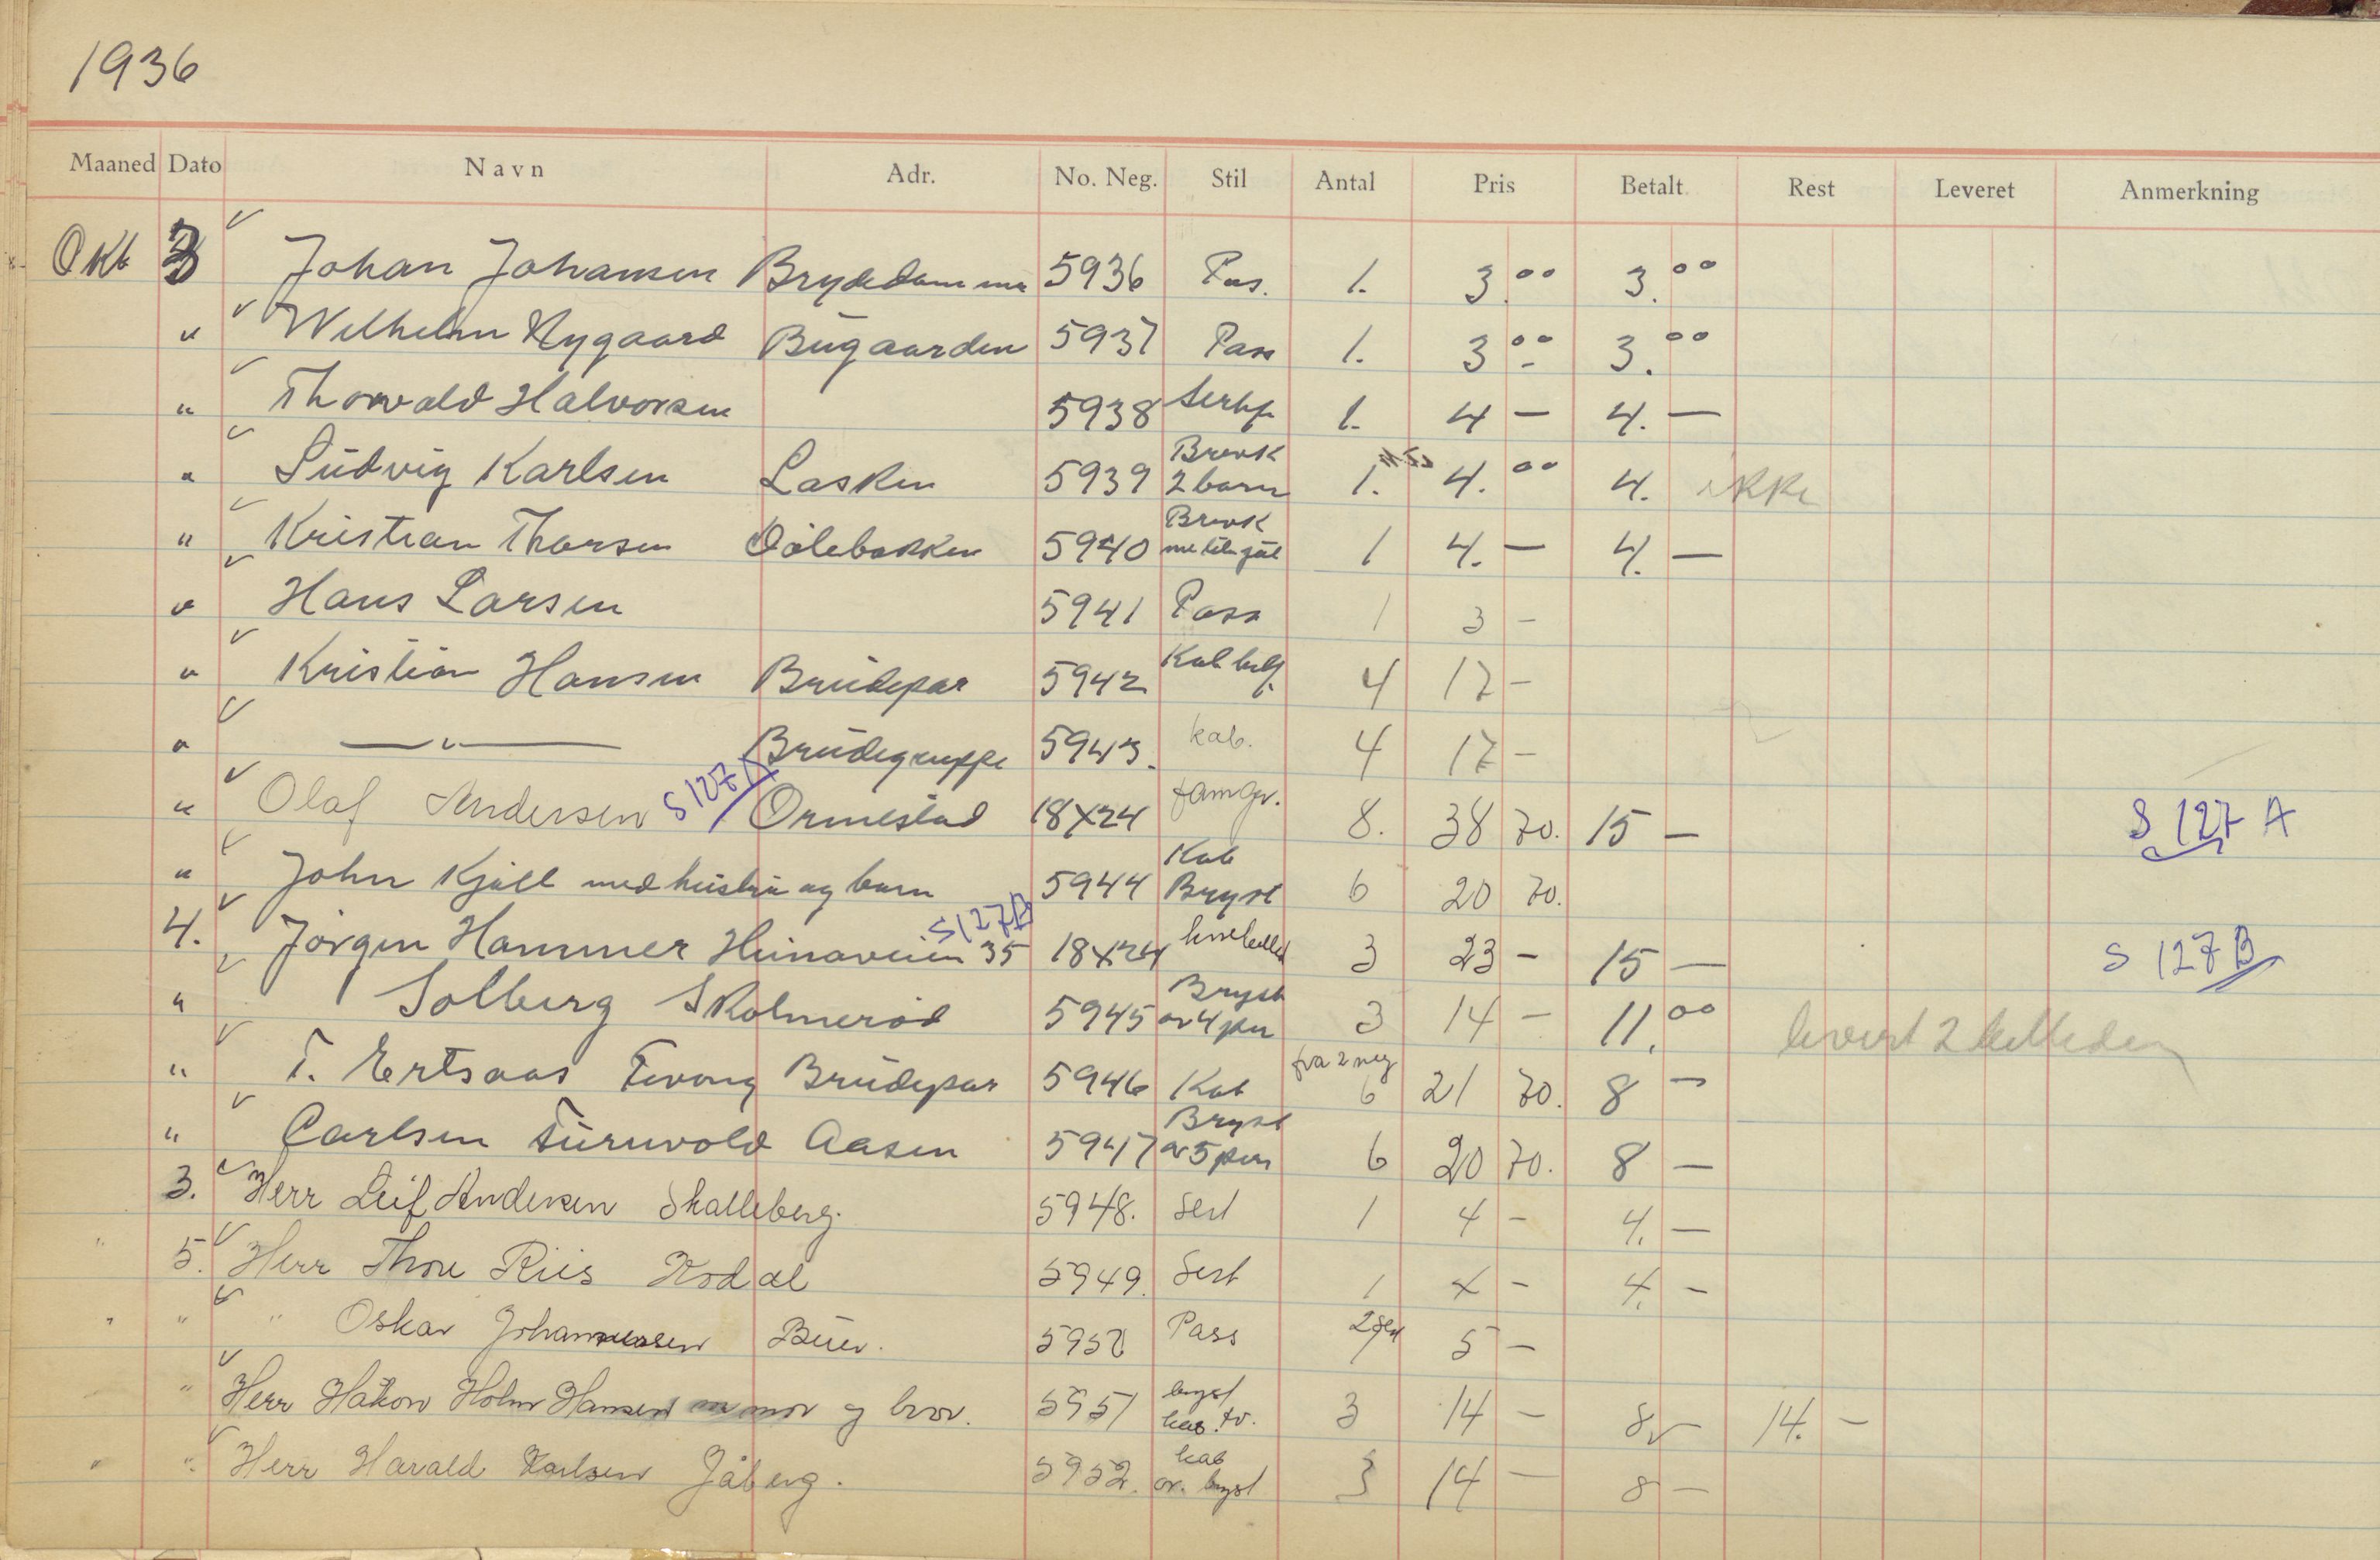 1936
Maaned Dato Navn Adr. No. Neg. Stil Antal Pris Betalt Rest Leveret Anmerkning
Okt 3 Johan Johansen Brydedammen 5936 Pas. 1. 3.00 3.00
" Wilhelm Nygaard Bugaarden 5937 Pass 1. 3 00 3.00
" Thorvald Halvorsen 5938 1. 4 — 4. —
" Ludvig Karlsen Lasken 5939 Brevk 2 barn 1. 4.00 4. ikke
" Kristian Thorsen Dölebakken 5940 Brevk 1 4. — 4. —
" Hans Larsen 5941 Pass 1 3 -
" Kristian Hansen Brudepar 5942 Kab 4 17 -
" —"— Brudegruppe 5943. kab. 4 17 -
" Olaf Andersen S 127 A Ormestad 18X24 famgr. 8. 38 70. 15 — S 127 A
" John Kjäll med hustru og barn 5944 Kab Bryst 6 20 70.
4. Jörgen Hammer Heimaveien 35 S127B 18x24 3 23 - 15 — S 127 B
" Solberg Skolmeröd 5945 Bryst av 4 per 3 14 - 11.00 levert 2
" T. Ertsaas Tevong Brudepar 5946 Kab fra 2 neg 6 21 70. 8 -
" Carlsen Furuvold Aasen 5947 Bryst av 5 pers 6 20 70. 8 —
3. Herr Leif Andersen Skalleberg. 5948. Sert 1 4 - 4. —
" 5. Herr Thore Riis Kodal 5949. Sert 1 4 - 4. -
" " " Oskar Johannessen Buer. 5950 Pass 1 5 -
" Herr Håkon Holm Hansen m mor og bror. 5951 bryst 3 14 - 8 — 14. -
" " Herr Harald Karlsen Jåberg. 5952. kab ov. bryst 3 14 - 8 —